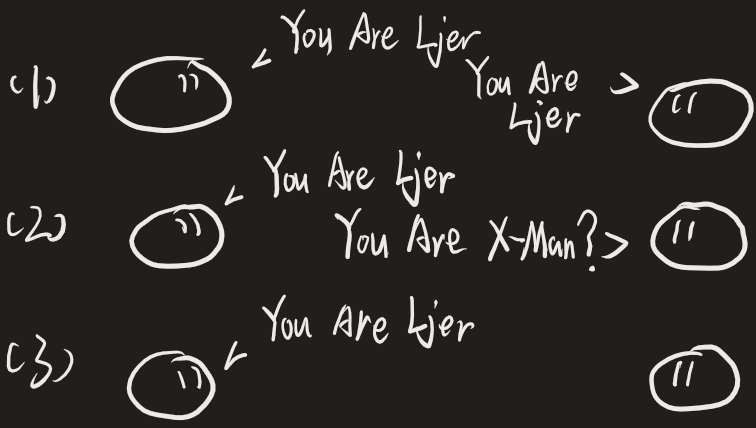 You Are Ljer
(1)
You Are
Ljer
You Are Ljer
(2)
You Are X-Man?
You Are Ljer
(3)